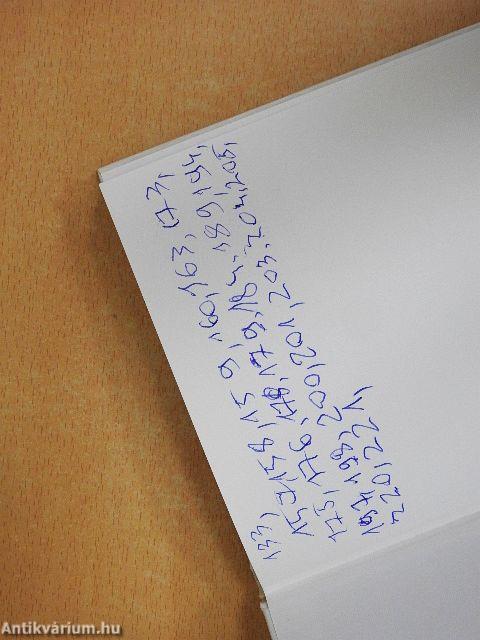 133,
157, 158, 159, 160, 163, 173,
175, 176, 178, 179, 184, 189, 194,
197, 198, 200, 201, 203, 204, 205,
220, 221,
Antikvárium.hu